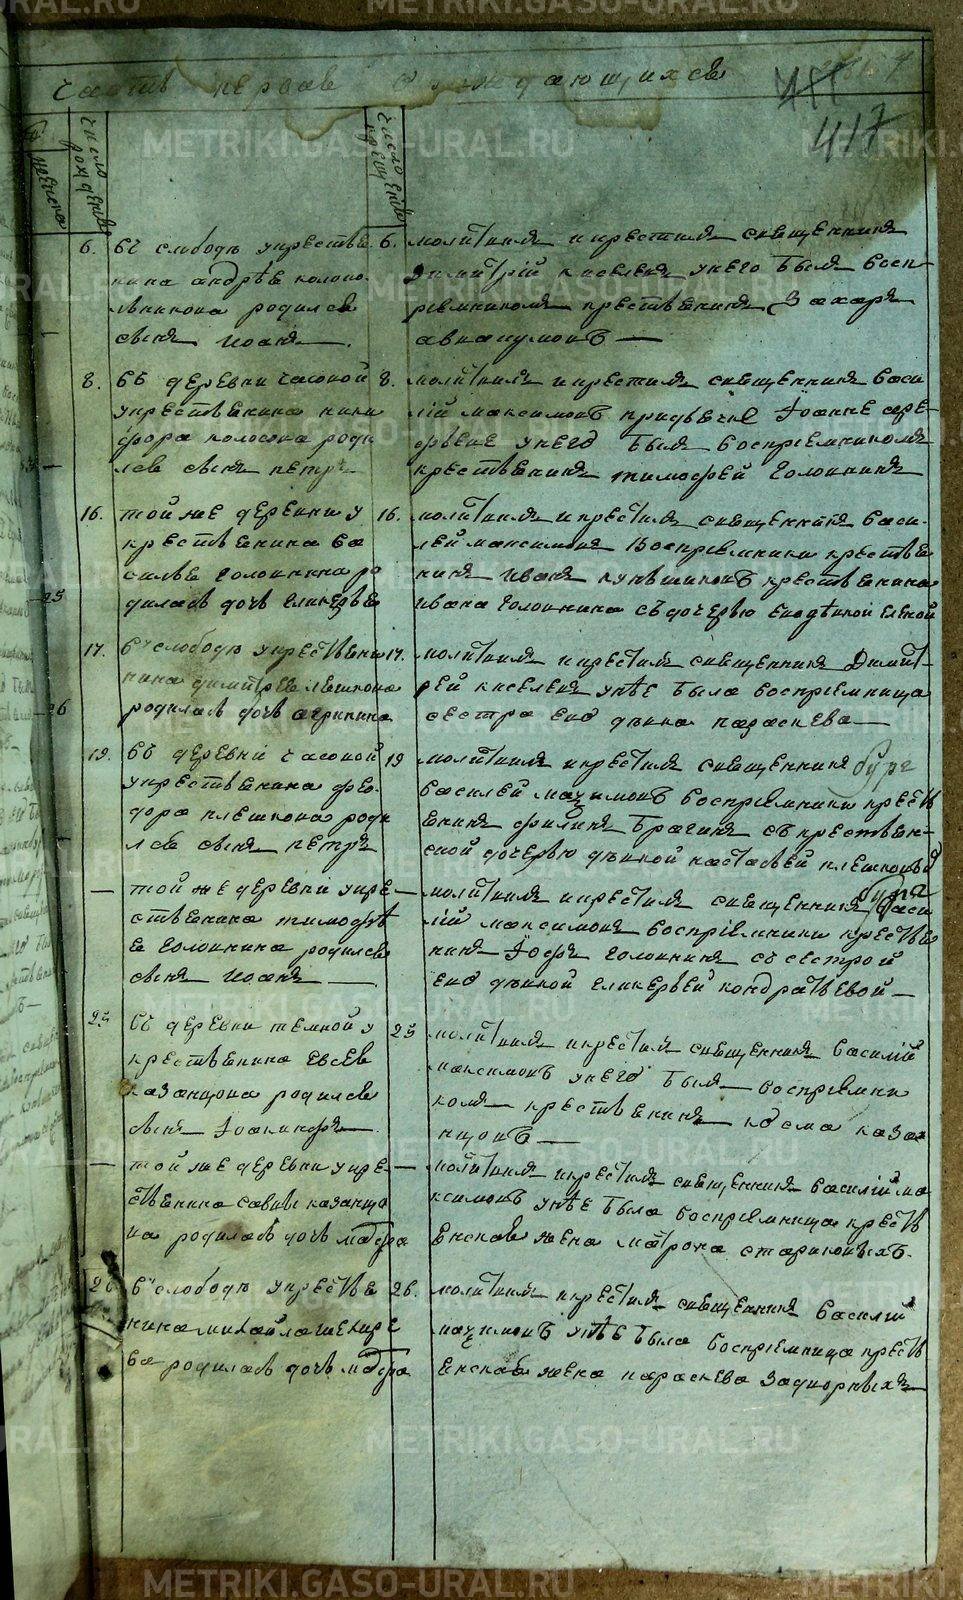 Часть первая о раждающихся
417
женска
число рождениѣ
число крещениѣ
6. въ слободѣ укрестья
нина андрѣя колоко
льникова родился
сынъ иоанъ
6. молитвилъ икрестилъ священникъ
димитрій киселевъ унего былъ восп
рiемникомъ крестьянинъ Захаръ
8. въ деревни часовой
укрестьянина ники
фора
лся сынъ петръ
8. молитвилъ икрестилъ священникъ васи
лій максимовъ
унего былъ восприемникомъ
крестьянинъ тимофей Головинъ
16. той же деревни у
крестьянина ва
силья Головнина ро
дилась дочь гликерья
16. молитвилъ икрестилъ священникъ васи
лей максимовъ восприемники крестья
нинъ иванъ крестьянина
ивана Головнина съдочерью Еленой
25
17. в слободѣ укрестьяни
нина димитрея пѣшкова
родилась дочь агрипина
17. молитвилъ икрестилъ священникъ димит
рей киселевъ унѣе была восприемница
сестра ево дѣвка параскева
26
19. въ деревни часовой
укрестьянина фео
дора плешкова роди
лся сынъ петръ
19 молитвилъ икрестилъ священникъ
василей маѯимовъ восприемники крестья
янинъ филипъ Брагинъ съ крестьян
ской дочерью дѣвкой настасьей плешковой
той же деревни укре
стьянина тимофѣ
я Головнина родился
сынъ иоанъ
молитвилъ икрестилъ священникъ васи
лій максимовъ восприемники крестья
нинъ Головнинъ съ сестрой
ево дѣвкой гликерьей кондратьевой
25 въ деревни темной у
крестьянина евсея
казанцова родился
сынъ Iоакинфъ
25 молитвилъ икрестилъ священникъ василій
максимовъ унего былъ восприемни
комъ крестьянинъ козма каза
нцовъ
той же деревни укре
стьянина савы казанцо
ва родилась дочь матра
молитвилъ икрестилъ священникъ василій ма
ксимовъ унѣе была восприемница крестья
янская жена матрона стариковыхъ.
26 в слободѣ укрестья
нина михайла
ва родилась дочь матра
26. молитвилъ икрестилъ священникъ василій
маѯимовъ унѣе была восприемница крестья
янская жена параскева Задворныхъ
METRIKI.GASO-URAL.RU